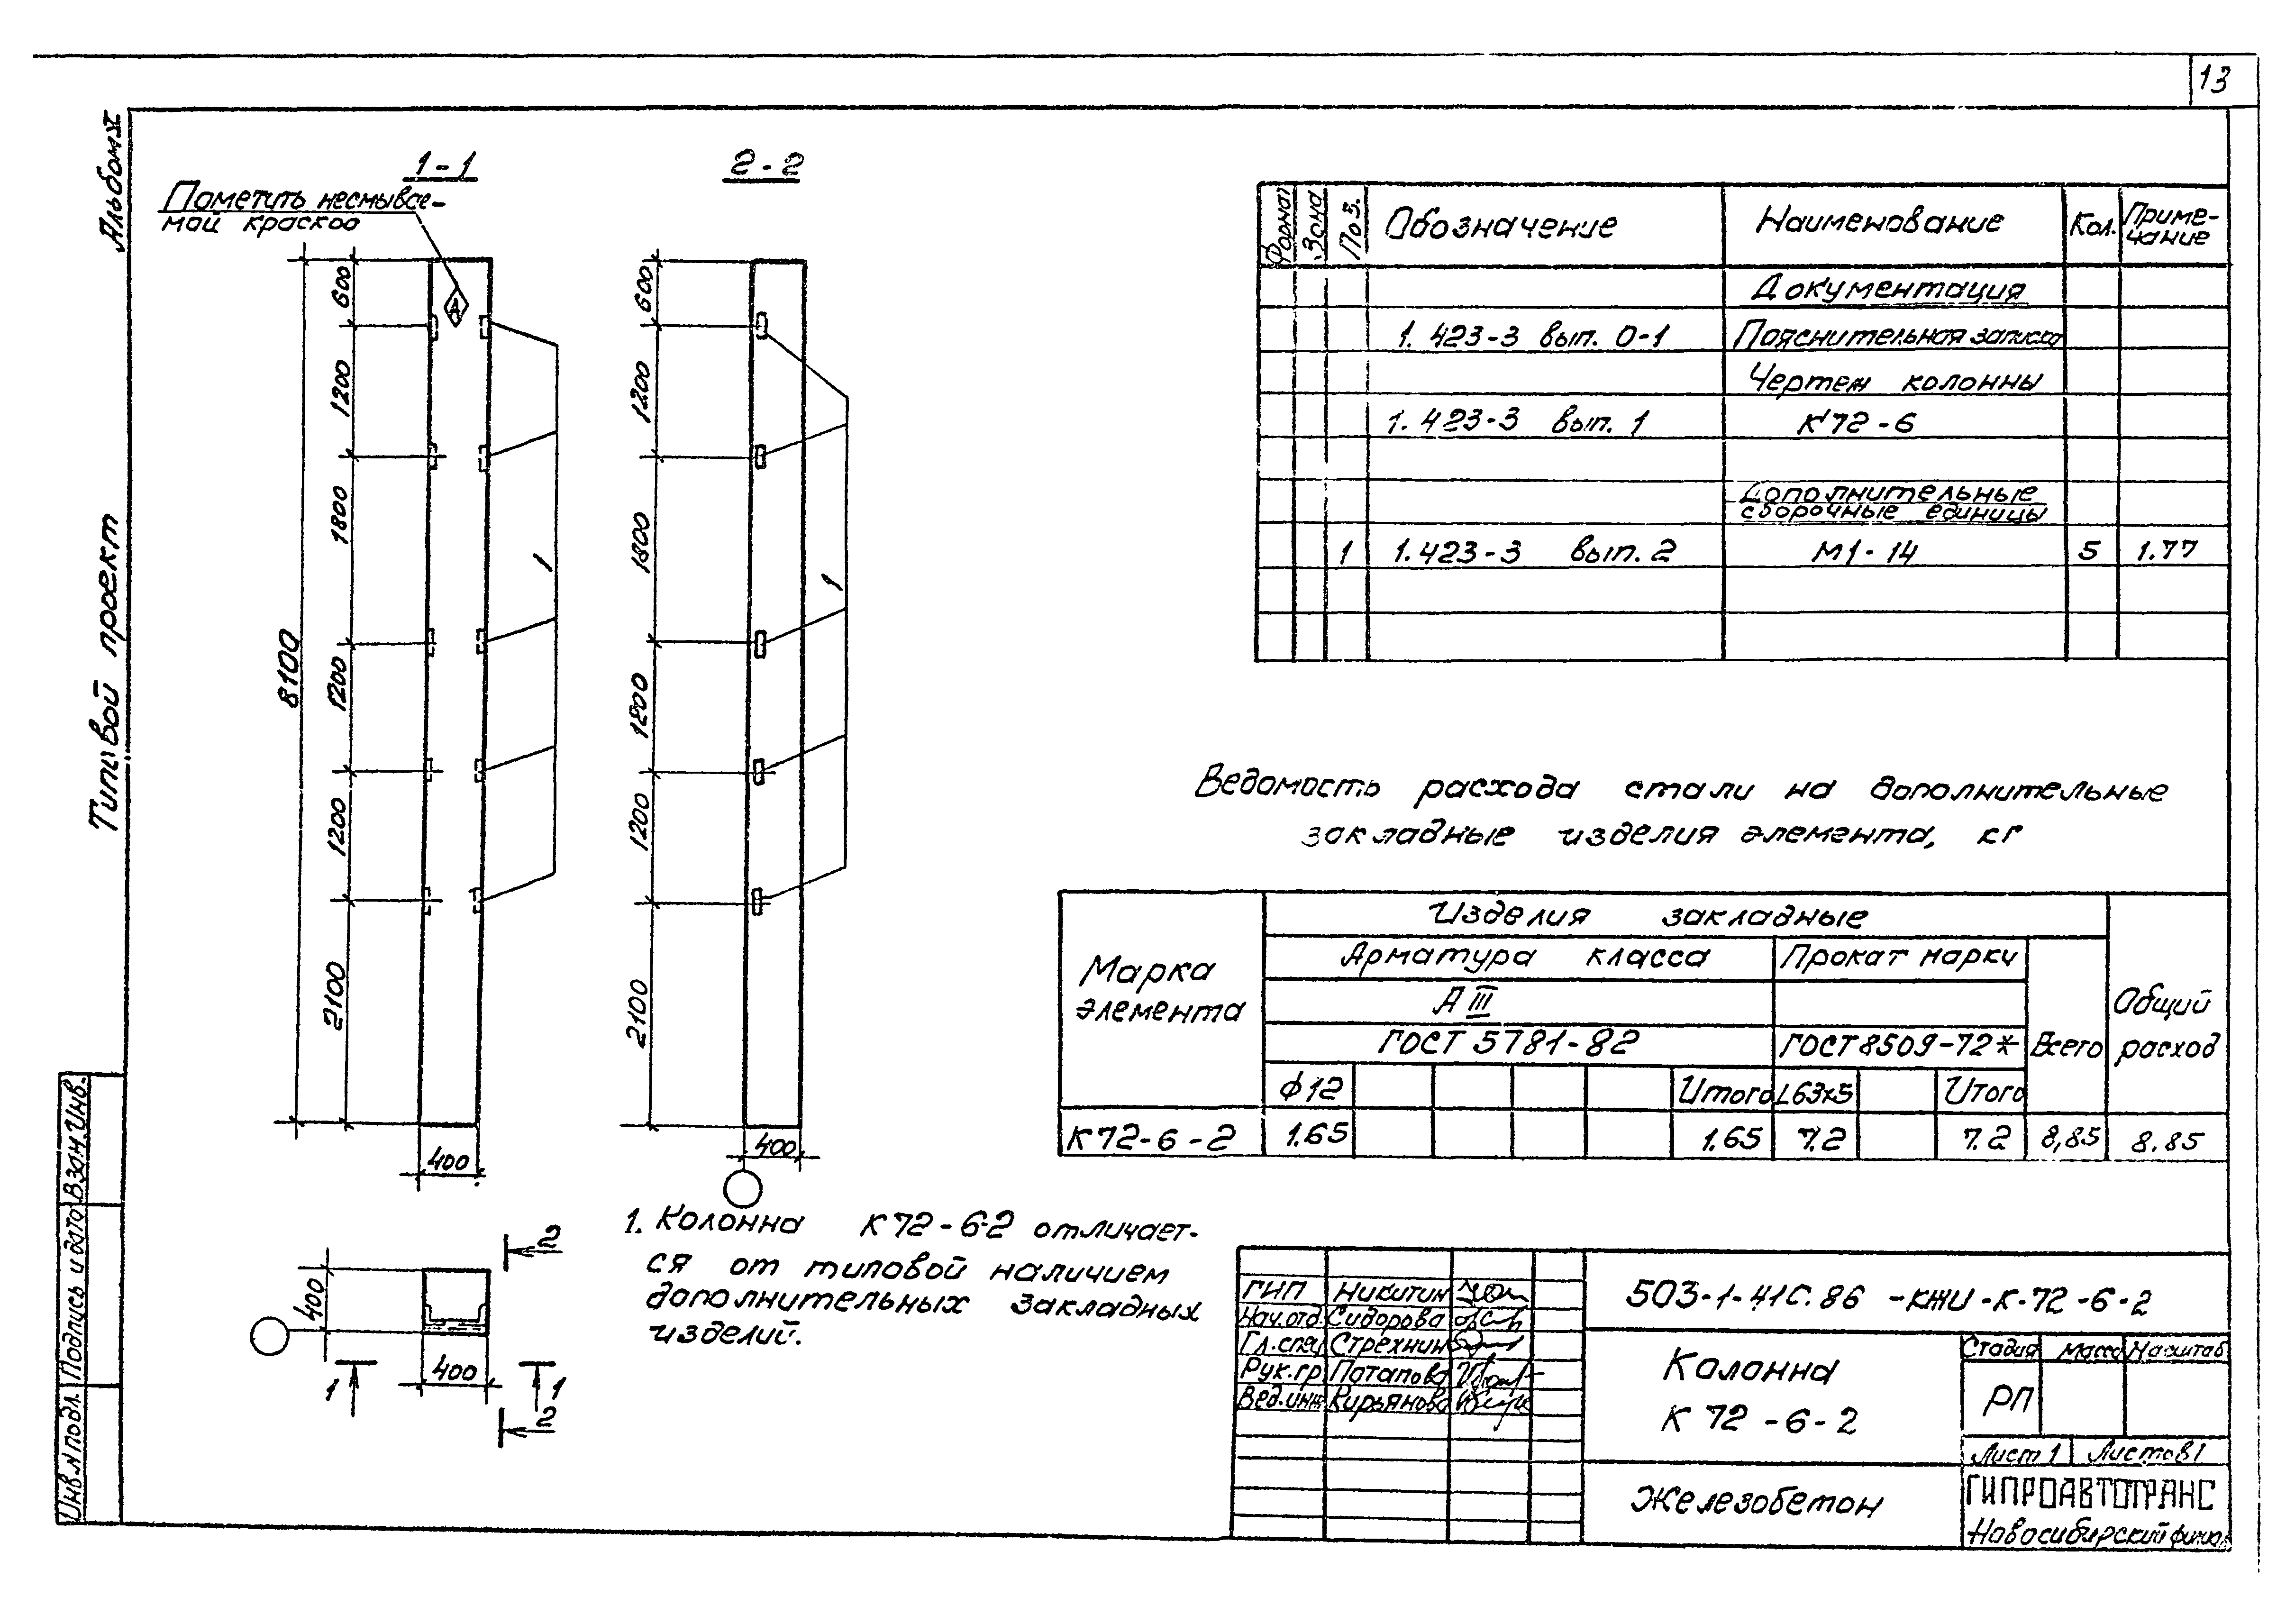 13
Альбом
Типовой проект
1-1
Пометить несмывае-
мой краской
А
2-2
600
1200
1800
1200
1200
2100
8100
400
1
600
1200
1800
1200
1200
2100
400
1
2
400
400
1
1
2
1. Колонна К72-6-2 отличает-
ся от типовой наличием
дополнительных закладных
изделий.
Формат Зона Поз. Обозначение Наименование Кол. Приме-
чание
Документация
1.423-3 вып. 0-1 Пояснительная записка
Чертеж колонны
1.423-3 вып. 1 К72-6
Дополнительные
сборочные единицы
1 1.423-3 вып. 2 М1-14 5 1.77
Ведомость расхода стали на дополнительные
закладные изделия элемента, кг
Марка
элемента
Изделия закладные
Арматура класса Прокат марки
А III
ГОСТ 5781-82 ГОСТ 8509-72* Всего
Общий
расход
ф12 Итого L63x5 Итого
К72-6-2 1.65 1.65 7.2 7.2 8,85 8.85
503-1-41с.86 -КЖИ-К-72-6-2
ГИП Никитин
Нач.отд. Сидорова
Гл.спец Стрехнин
Рук.гр Потапова
Вед.инж Кирьянова
Колонна
К 72-6-2
Стадия Масса Масштаб
РП
Лист 1 Листов 1
Железобетон
ГИПРОАВТОТРАНС
Новосибирский филиал
Взам.Инв.
Подпись и дата
Инв.N подл.